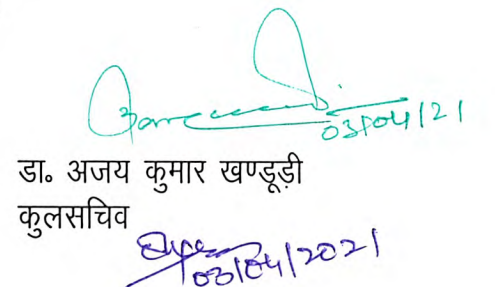 03/04/21
डा॰ अजय कुमार खण्डूड़ी
कुलसचिव
03/04/2021